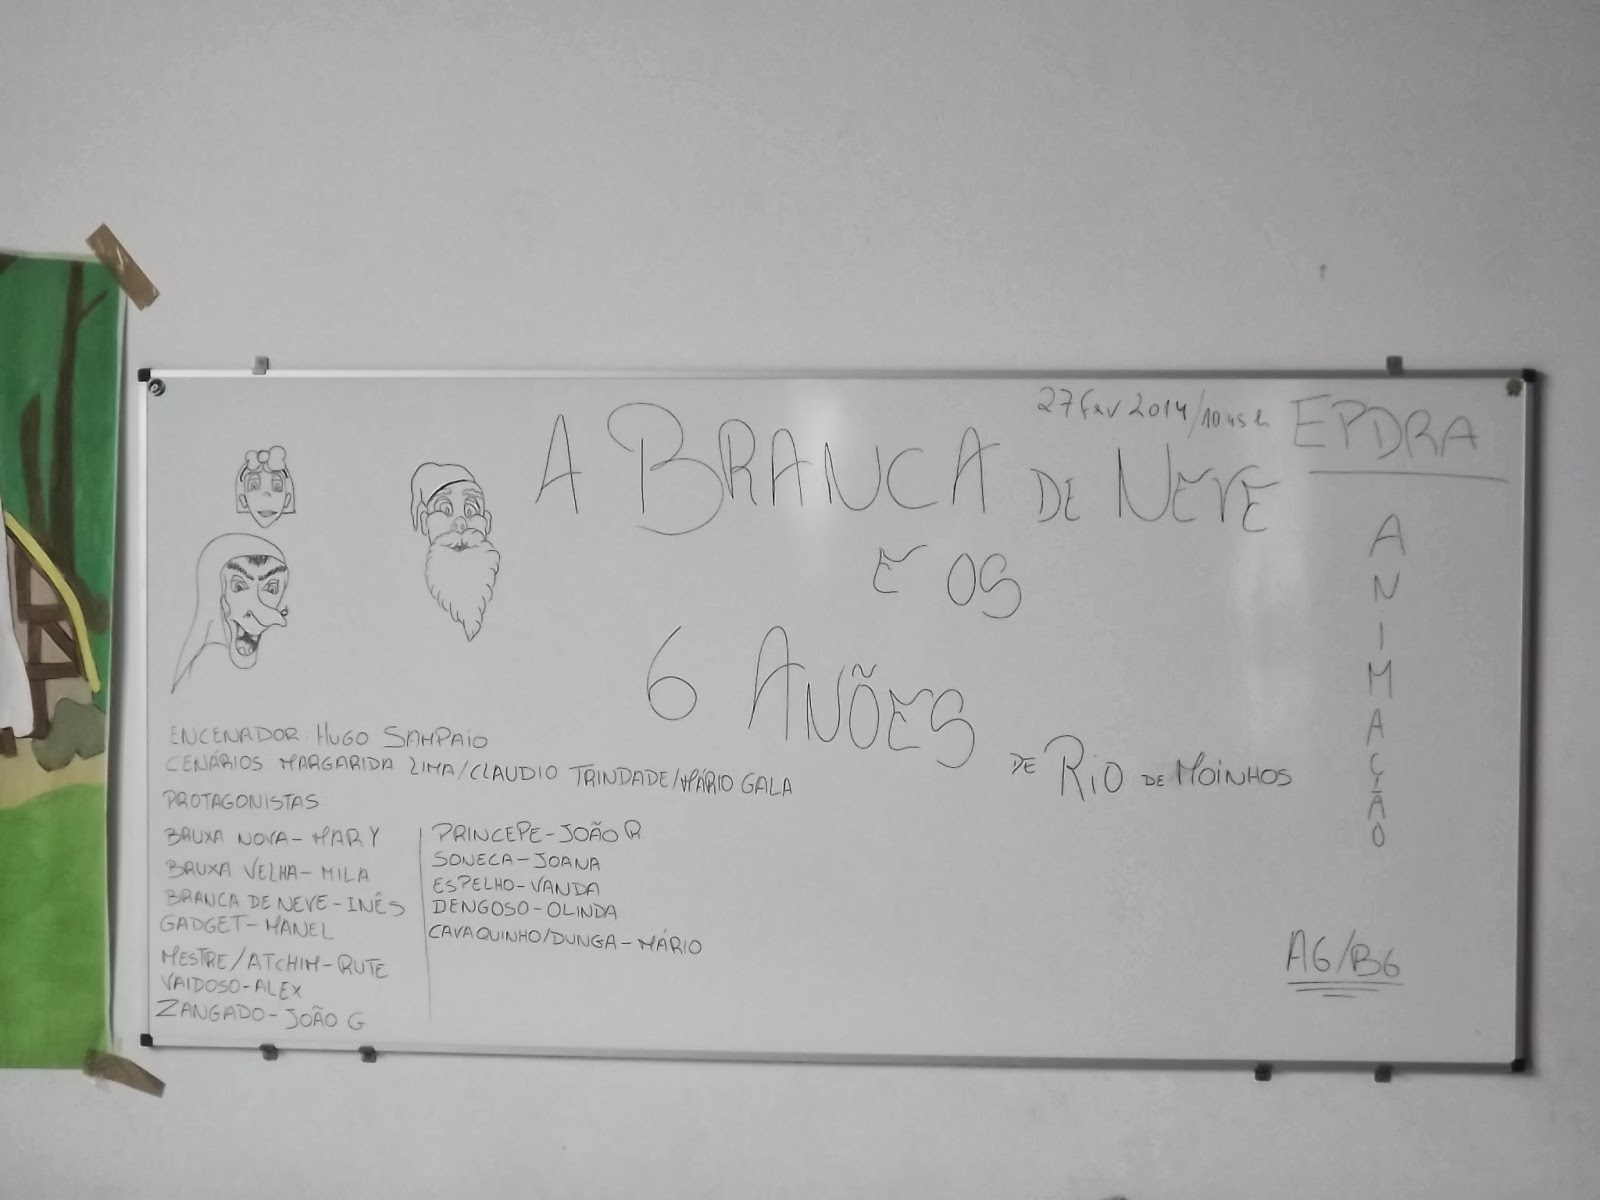 27 Fev 2014/10 45 h
EPDRA
A BRANCA DE NEVE
E OS
6 ANÕES
DE RIO DE MOINHOS
ANIMAÇÃO
ENCENADOR: HUGO SAMPAIO
CENÁRIOS MARGARIDA LIMA/CLAUDIO TRINDADE/MÁRIO GALA
PROTAGONISTAS:
BRUXA NOVA-MARY
BRUXA VELHA-MILA
BRANCA DE NEVE-INÊS
GADGET-MANEL
MESTRE/ATCHIM-RUTE
VAIDOSO-ALEX
ZANGADO-JOÃO G
PRINCEPE-JOÃO R
SONECA-JOANA
ESPELHO-VANDA
DENGOSO-OLINDA
CAVAQUINHO/DUNGA-MÁRIO
A6/B6